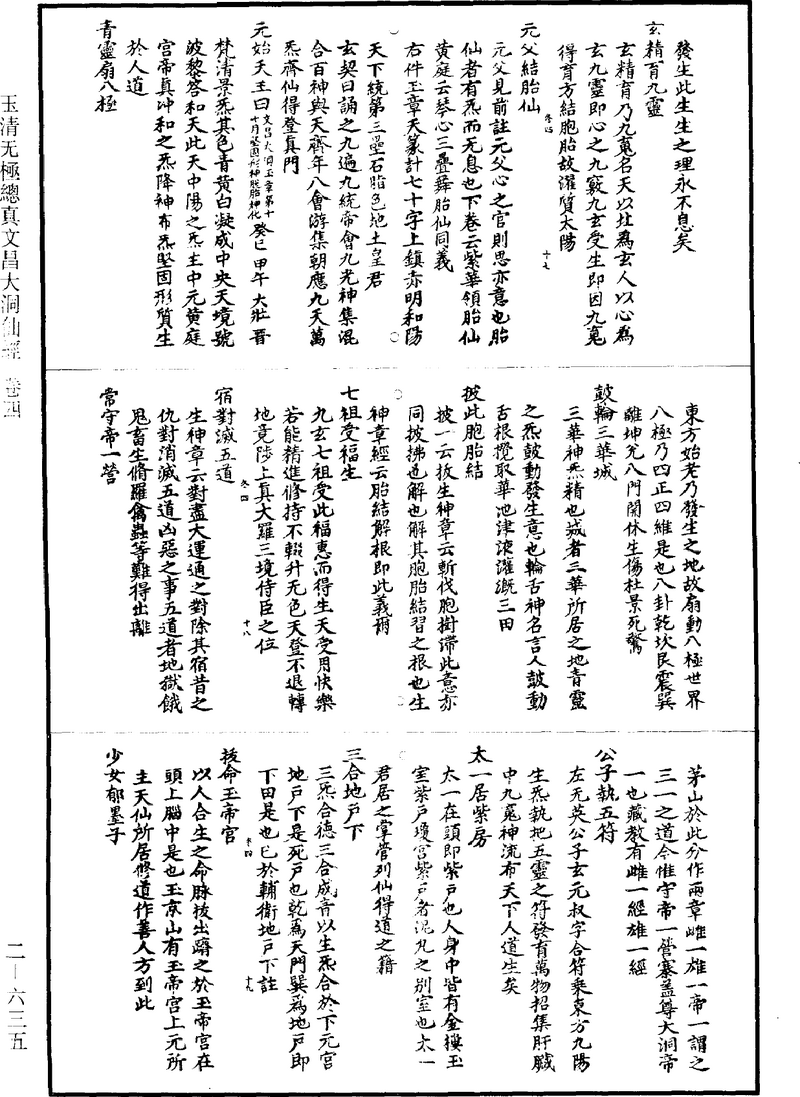 發生此生生之理永不息矣
玄精育九靈
玄精育乃九䰟名天以壯為玄人以心為
玄九靈即心之九竅九玄受生即因九䰟
得育方結胞胎故濯質太陽
卷四 十七
元父結胎仙
元父見前註元父心之官則思亦意也胎
仙者有炁而无息也下卷云紫華領胎仙
黃庭云琴心三疊舞胎仙同義
右件玉章天篆計七十字上鎮赤明和陽
天下統第三壘石脂色地土皇君
玄契曰誦之九遍九統帝會九光神集混
合百神與天齊年八會游集朝應九天萬
炁齊仙得登真門
元始天王曰文昌大洞玉章第十十月堅固形神脫胎神化癸巳 甲午 大壯晉
梵清景炁其色青黃白凝成中央天境號
波黎答和天此天中陽之炁主中元黃庭
宮帝真沖和之炁降神布炁堅固形質生
於人道
青靈扇八極
東方始老乃發生之地故扇動八極世界
八極乃四正四維是也八卦乾坎艮震巽
離坤兌八門開休生傷杜景死驚
鼓輪三華城
三華神炁精也城者三華所居之地青靈
之炁鼓動發生意也輪舌神名言人鼓動
舌根攪取華池津液灌溉三田
披此胞胎結
披一云拔生神章云斬伐胞樹滯此意亦
同披拂也解也解其胞胎結習之根也生
神章經云胎結解根即此義爾
七祖受福生
九玄七祖受此福惠而得生天受用快樂
若能精進修持不輟升无色天登不退轉
地竟陟上真大羅三境侍臣之位
卷四 十八
宿對滅五道
生神章云對盡大運通之對除其宿昔之
仇對消滅五道凶惡之事五道者地獄餓
鬼畜生脩羅禽蟲等難得出離
常守帝一營
茅山於此分作兩章雌一雄一帝一謂之
三一之道今惟守帝一營寨蓋尊大洞帝
一也藏教有雌一經雄一經
公子執五符
左无英公子玄元叔字合符乘東方九陽
生炁執把五靈之符發育萬物招集肝臟
中九䰟神流布天下人道生矣
太一居紫房
太一在頭即紫戶也人身中皆有金樓玉
室紫戶瓊宮紫戶者泥丸之別室也太一
君居之掌管列仙得道之籍
三合地戶下
三炁合德三合成音以生炁合於下元宮
地戶下是死戶也乾為天門巽為地戶即
下田是也已於輔衛地戶下註
卷四 十九
拔命玉帝宮
以人合生之命脉拔出躋之於玉帝宮在
頭上腦中是也玉京山有玉帝宮上元所
主天仙所居修道作善人方到此
少女郁墨子
玉清无極總真文昌大洞仙經 卷四
二—六三五